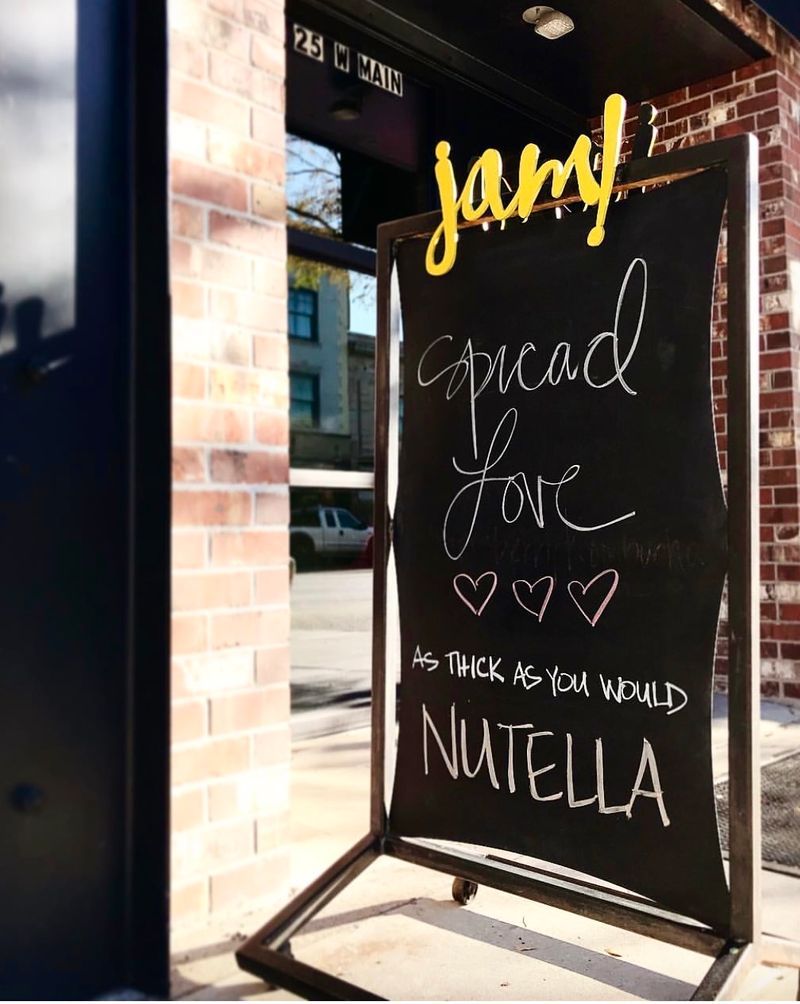 25 W MAIN
jam!
spread
love
AS THICK AS YOU WOULD
NUTELLA